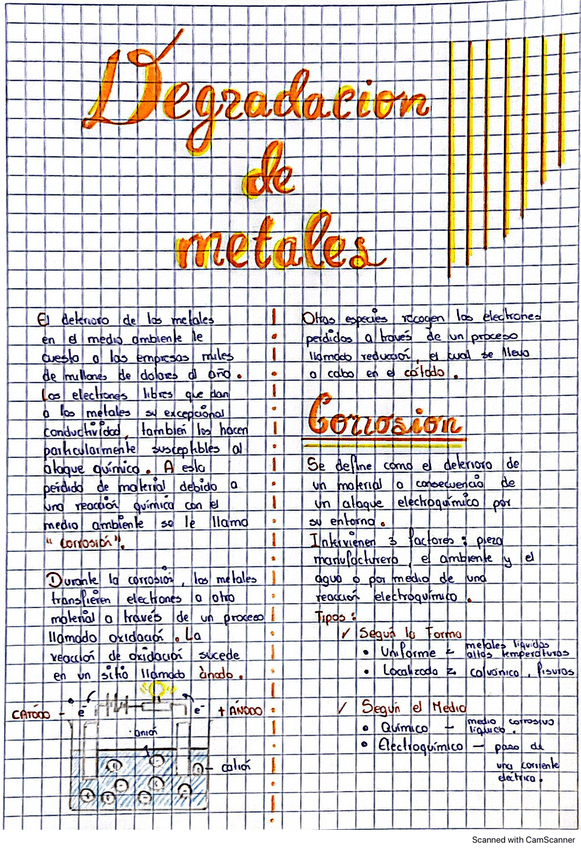 Degradacion
de
metales
El deterioro de los metales
en el medio ambiente le
cuesta a las empresas miles
de millones de dolares al año.
Los electrones libres que dan
a los metales su excepcional
conductividad, también los hacen
particularmente susceptibles al
ataque químico. A esta
pérdida de material debido a
una reacción química con el
medio ambiente se le llama
"corrosión".
Durante la corrosión, los metales
transfieren electrones a otro
material a través de un proceso
llamado oxidación. La
reacción de oxidación sucede
en un sitio llamado ánodo.
CATODO - e⁻ e⁻ + ÁNODO
anión
catión
Otras especies recogen los electrones
perdidos a través de un proceso
llamado reducción, el cual se lleva
a cabo en el cátodo.
Corrosion
Se define como el deterioro de
un material a consecuencia de
un ataque electroquímico por
su entorno.
Intervienen 3 factores: pieza
manufacturera, el ambiente y el
agua o por medio de una
reacción electroquímica.
Tipos:
✓ Según la Forma
• Uniforme - metales líquidos
altas temperaturas
• Localizada - galvánico, fisuras
✓ Según el Medio
• Químico - medio corrosivo
líquido.
• Electroquímico - paso de
una corriente
electrica.
Scanned with CamScanner